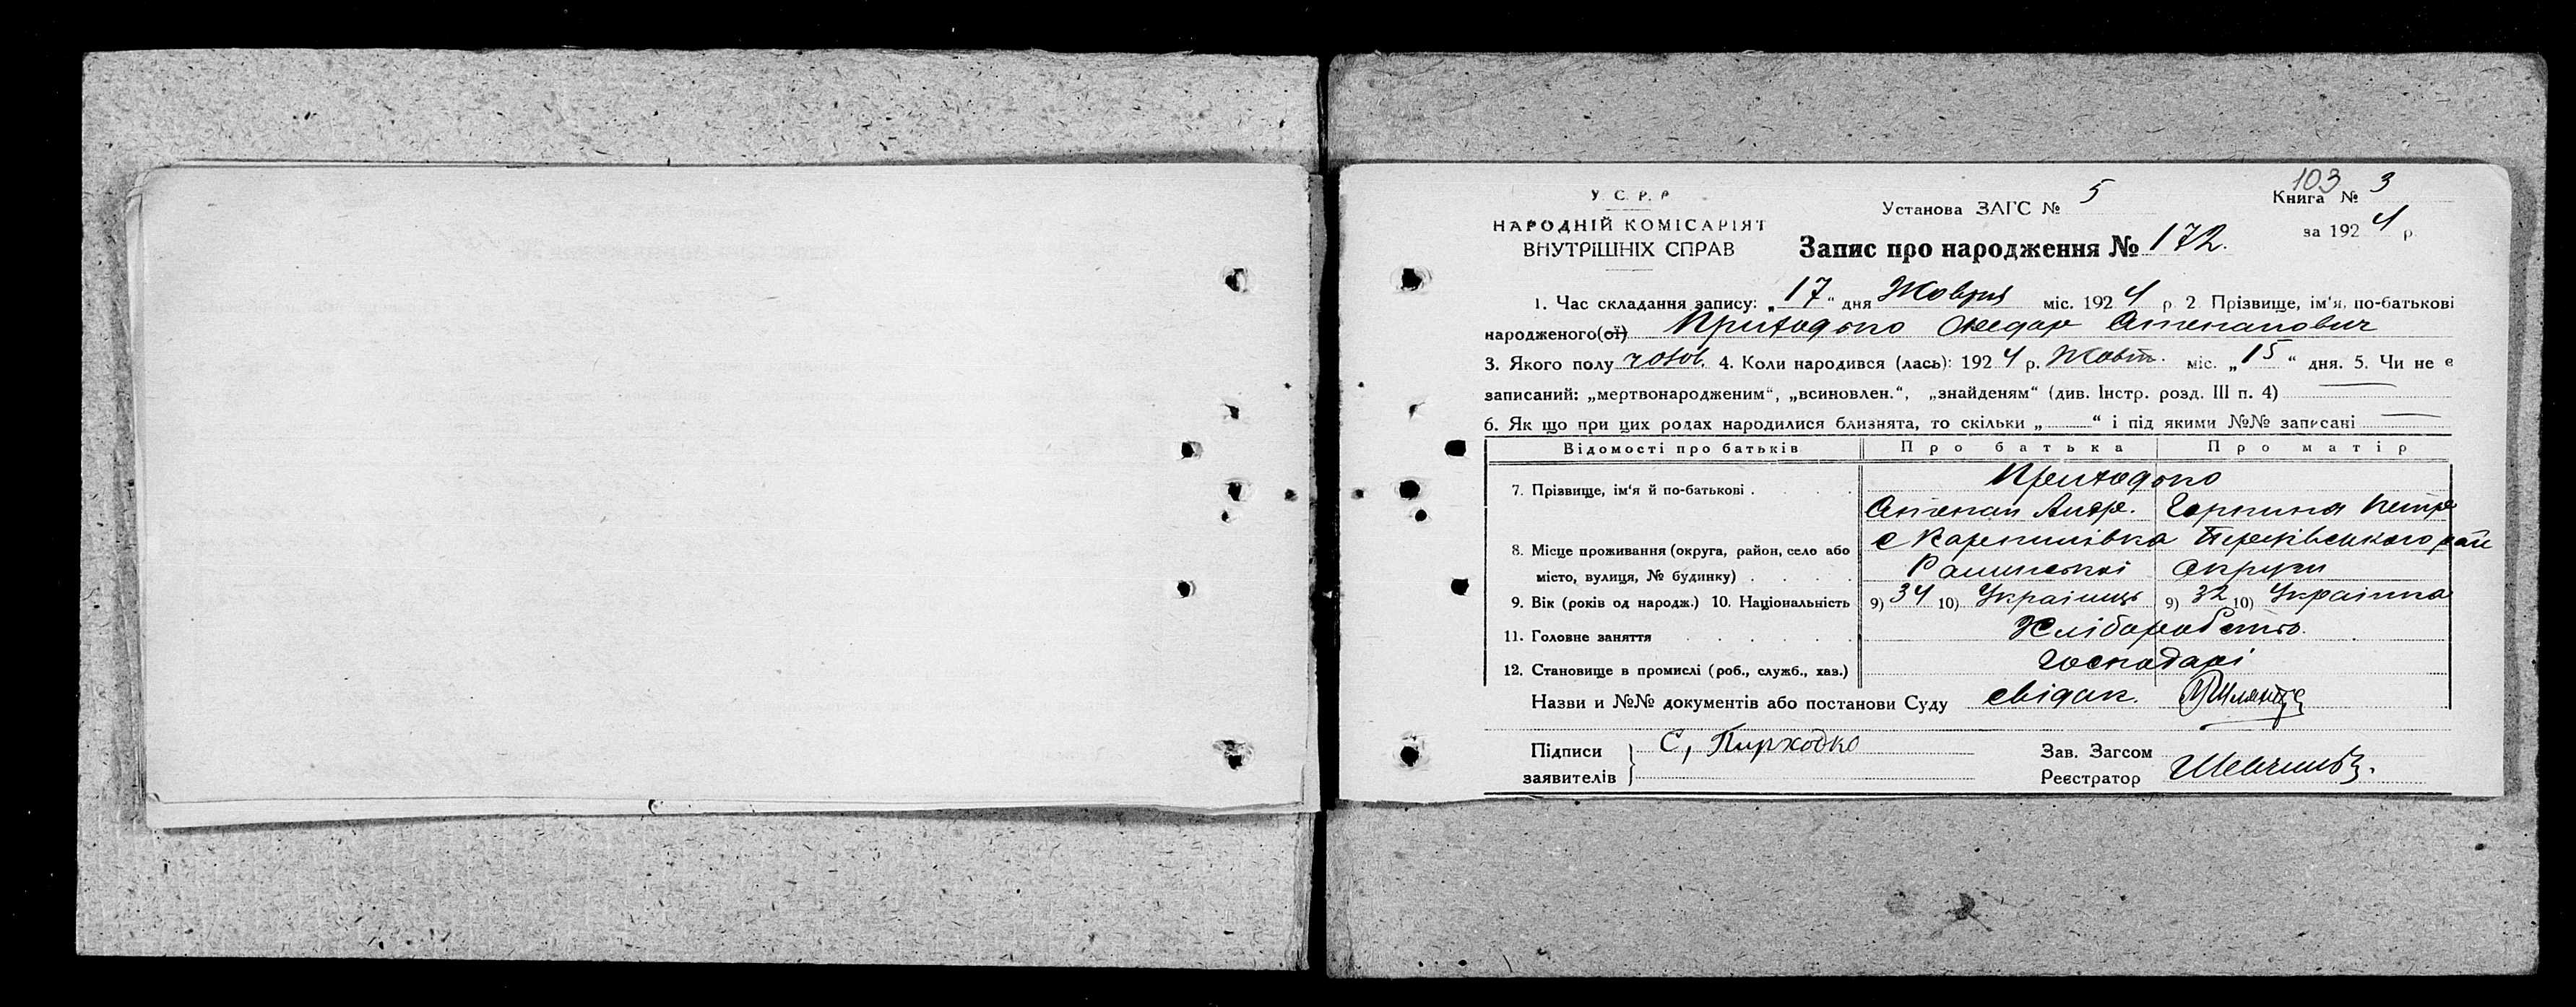 У. С. Р. Р
НАРОДНІЙ КОМІСАРІЯТ
ВНУТРІШНІХ СПРАВ
Установа ЗАГС № 5
103
Книга № 3
за 1924 р.
Запис про народження № 172.
1. Час складання запису: „17“ дня Жовтня міс. 1924 р. 2. Прізвище, ім‘я, по-батькові
народженого(ої) Приходько Степанович
3. Якого полу чолов. 4. Коли народився (лась): 1924 р. Жовт. міс. „15“ дня. 5. Чи не є
записаний: „мертвонародженим“, „всиновлен.“, „знайденям“ (див. Інстр. розд. III п. 4)
6. Як що при цих родах народилися близнята, то скільки „ “ і під якими №№ записані
Відомості про батьків Про батька Про матір
7. Прізвище, ім‘я й по-батькові Приходько
Степан Андр. Горпина Петр
8. Місце проживання (округа, район, село або с Карпилівка район
місто, вулиця, № будинку) Роменської округи
9. Вік (років од народж.) 10. Національність 9) 34 10) Українець 9) 32 10) Українка
11. Головне заняття Хліборобство.
12. Становище в промислі (роб., служб., хаз.) Господарі
Назви и №№ документів або постанови Суду свідок.
Підписи заявителів С, Пирходко
Зав. Загсом
Реєстратор